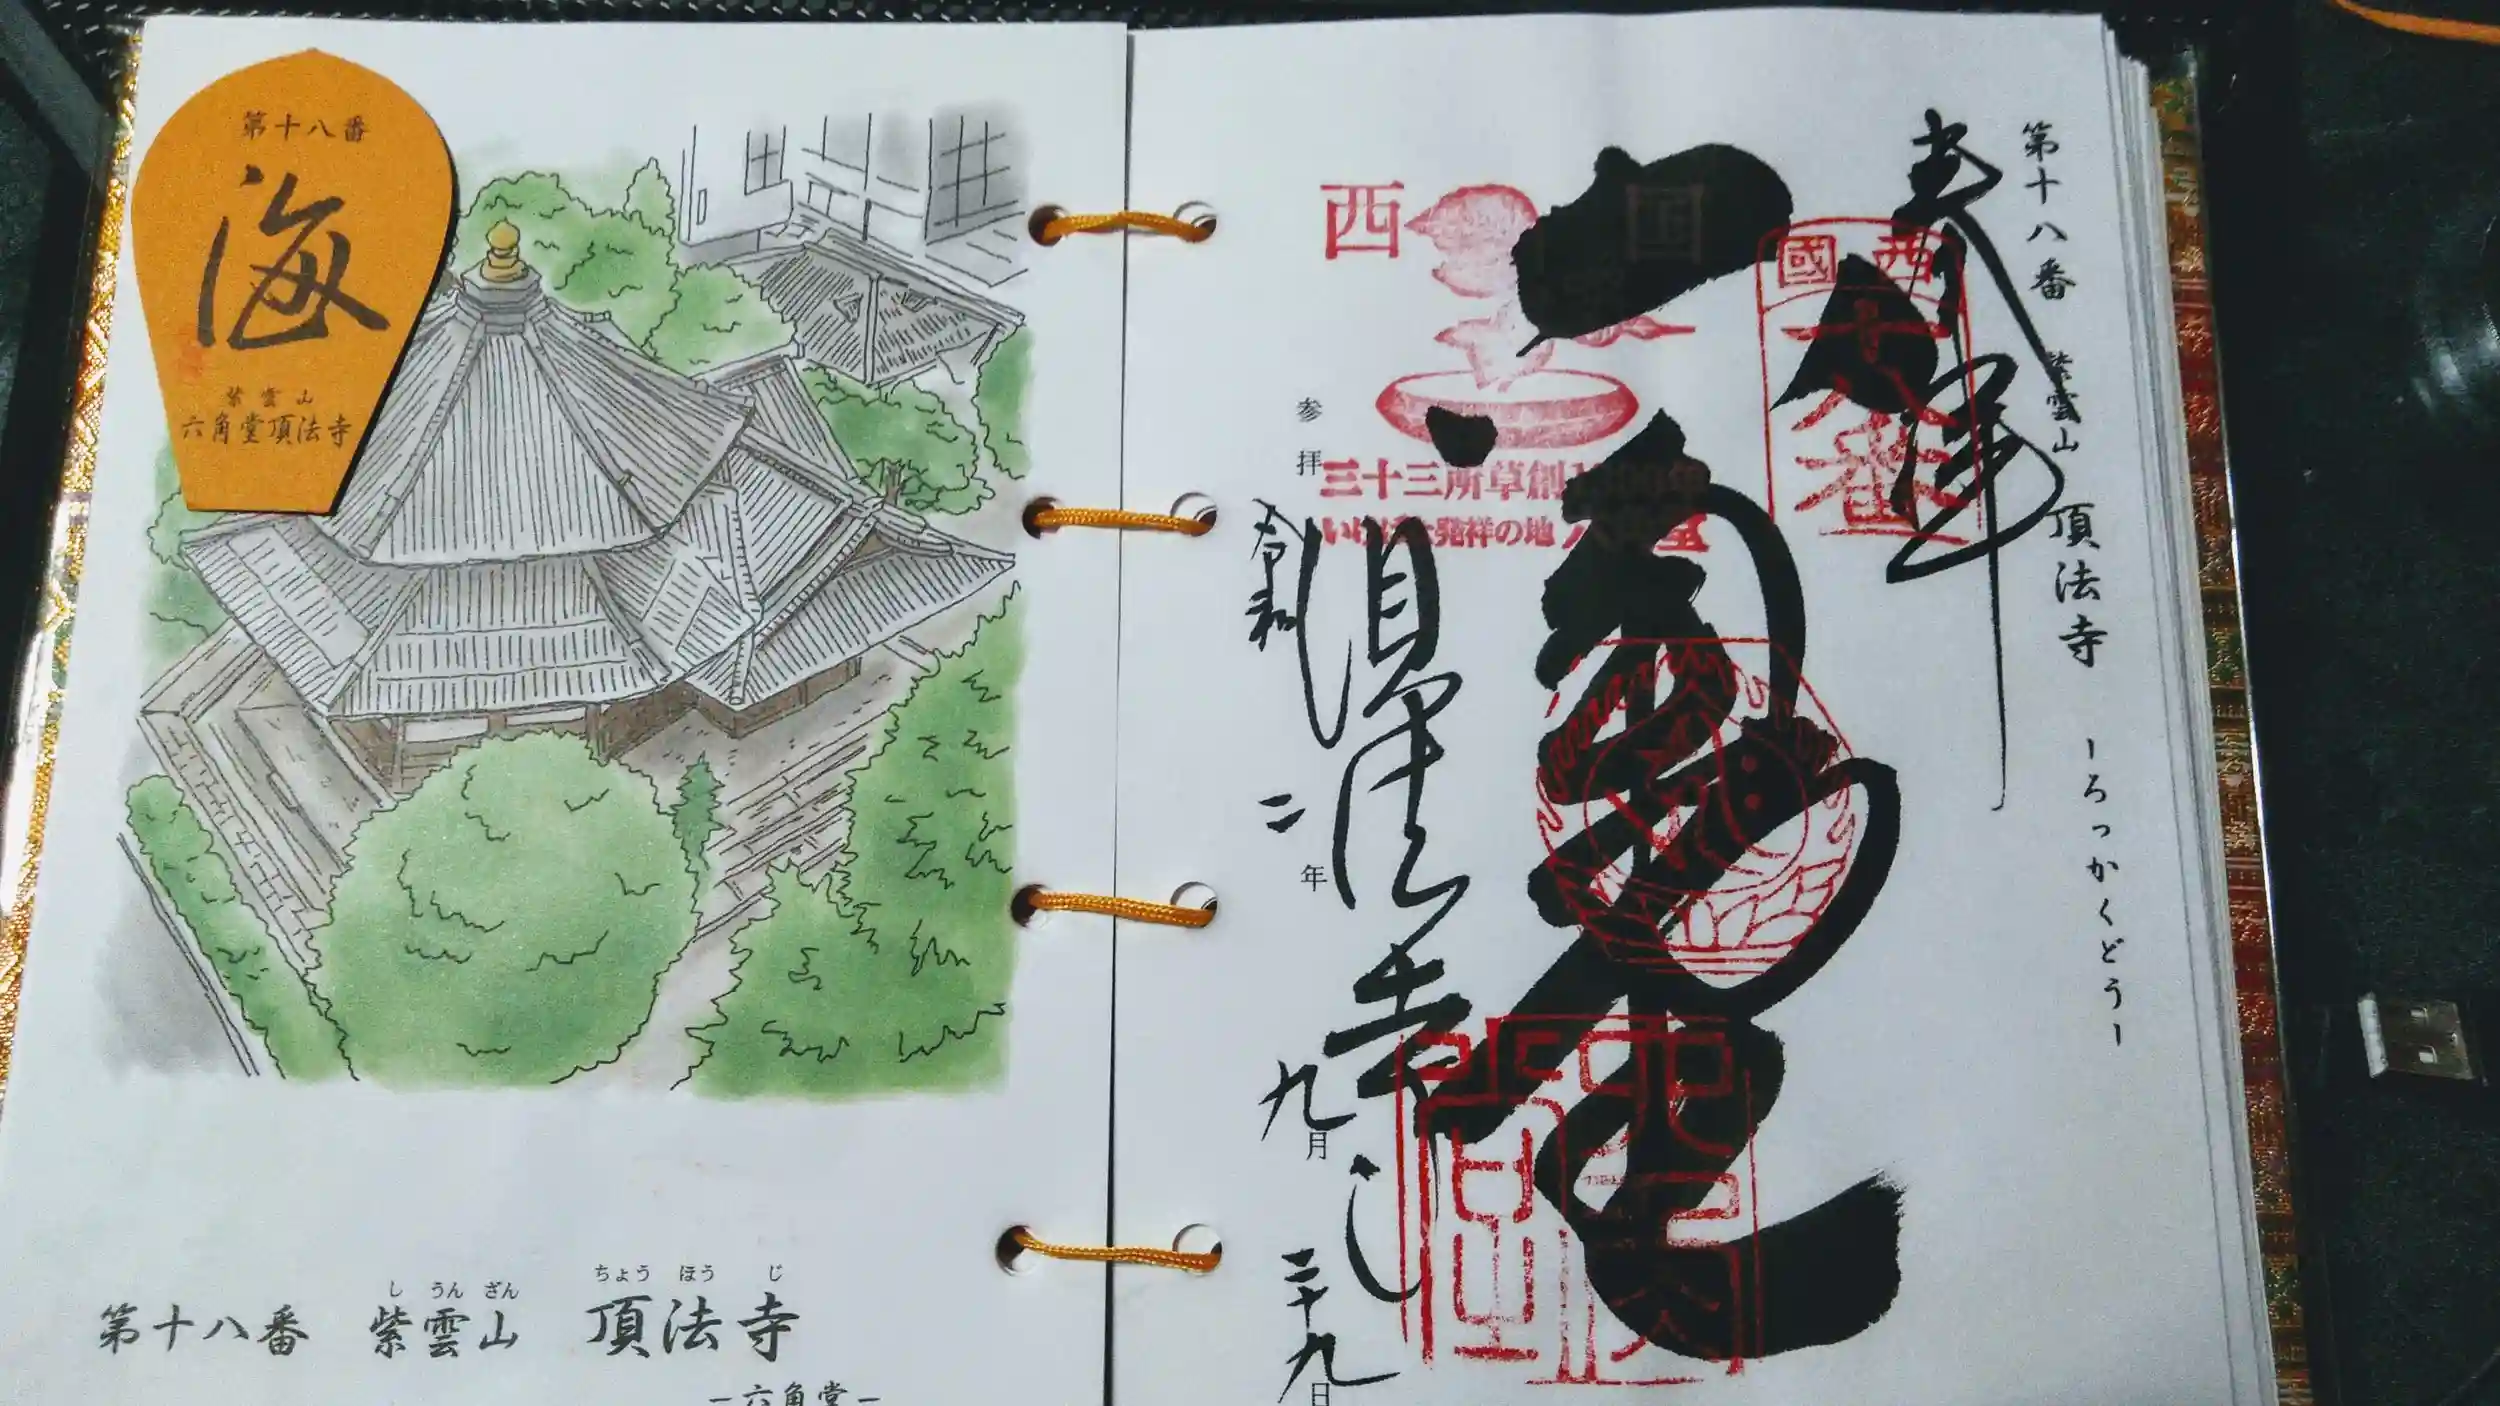 第十八番
海
紫雲山
六角堂頂法寺
第十八番 紫雲山 頂法寺
し うん ざん ちょう ほう じ
－六角堂－
第十八番 紫雲山 頂法寺 －ろっかくどう－
奉拝
西国
十八番
西国
三十三所草創
いけばな発祥の地 六角堂
六角堂
頂法寺
参拝
令和二年九月二十九日